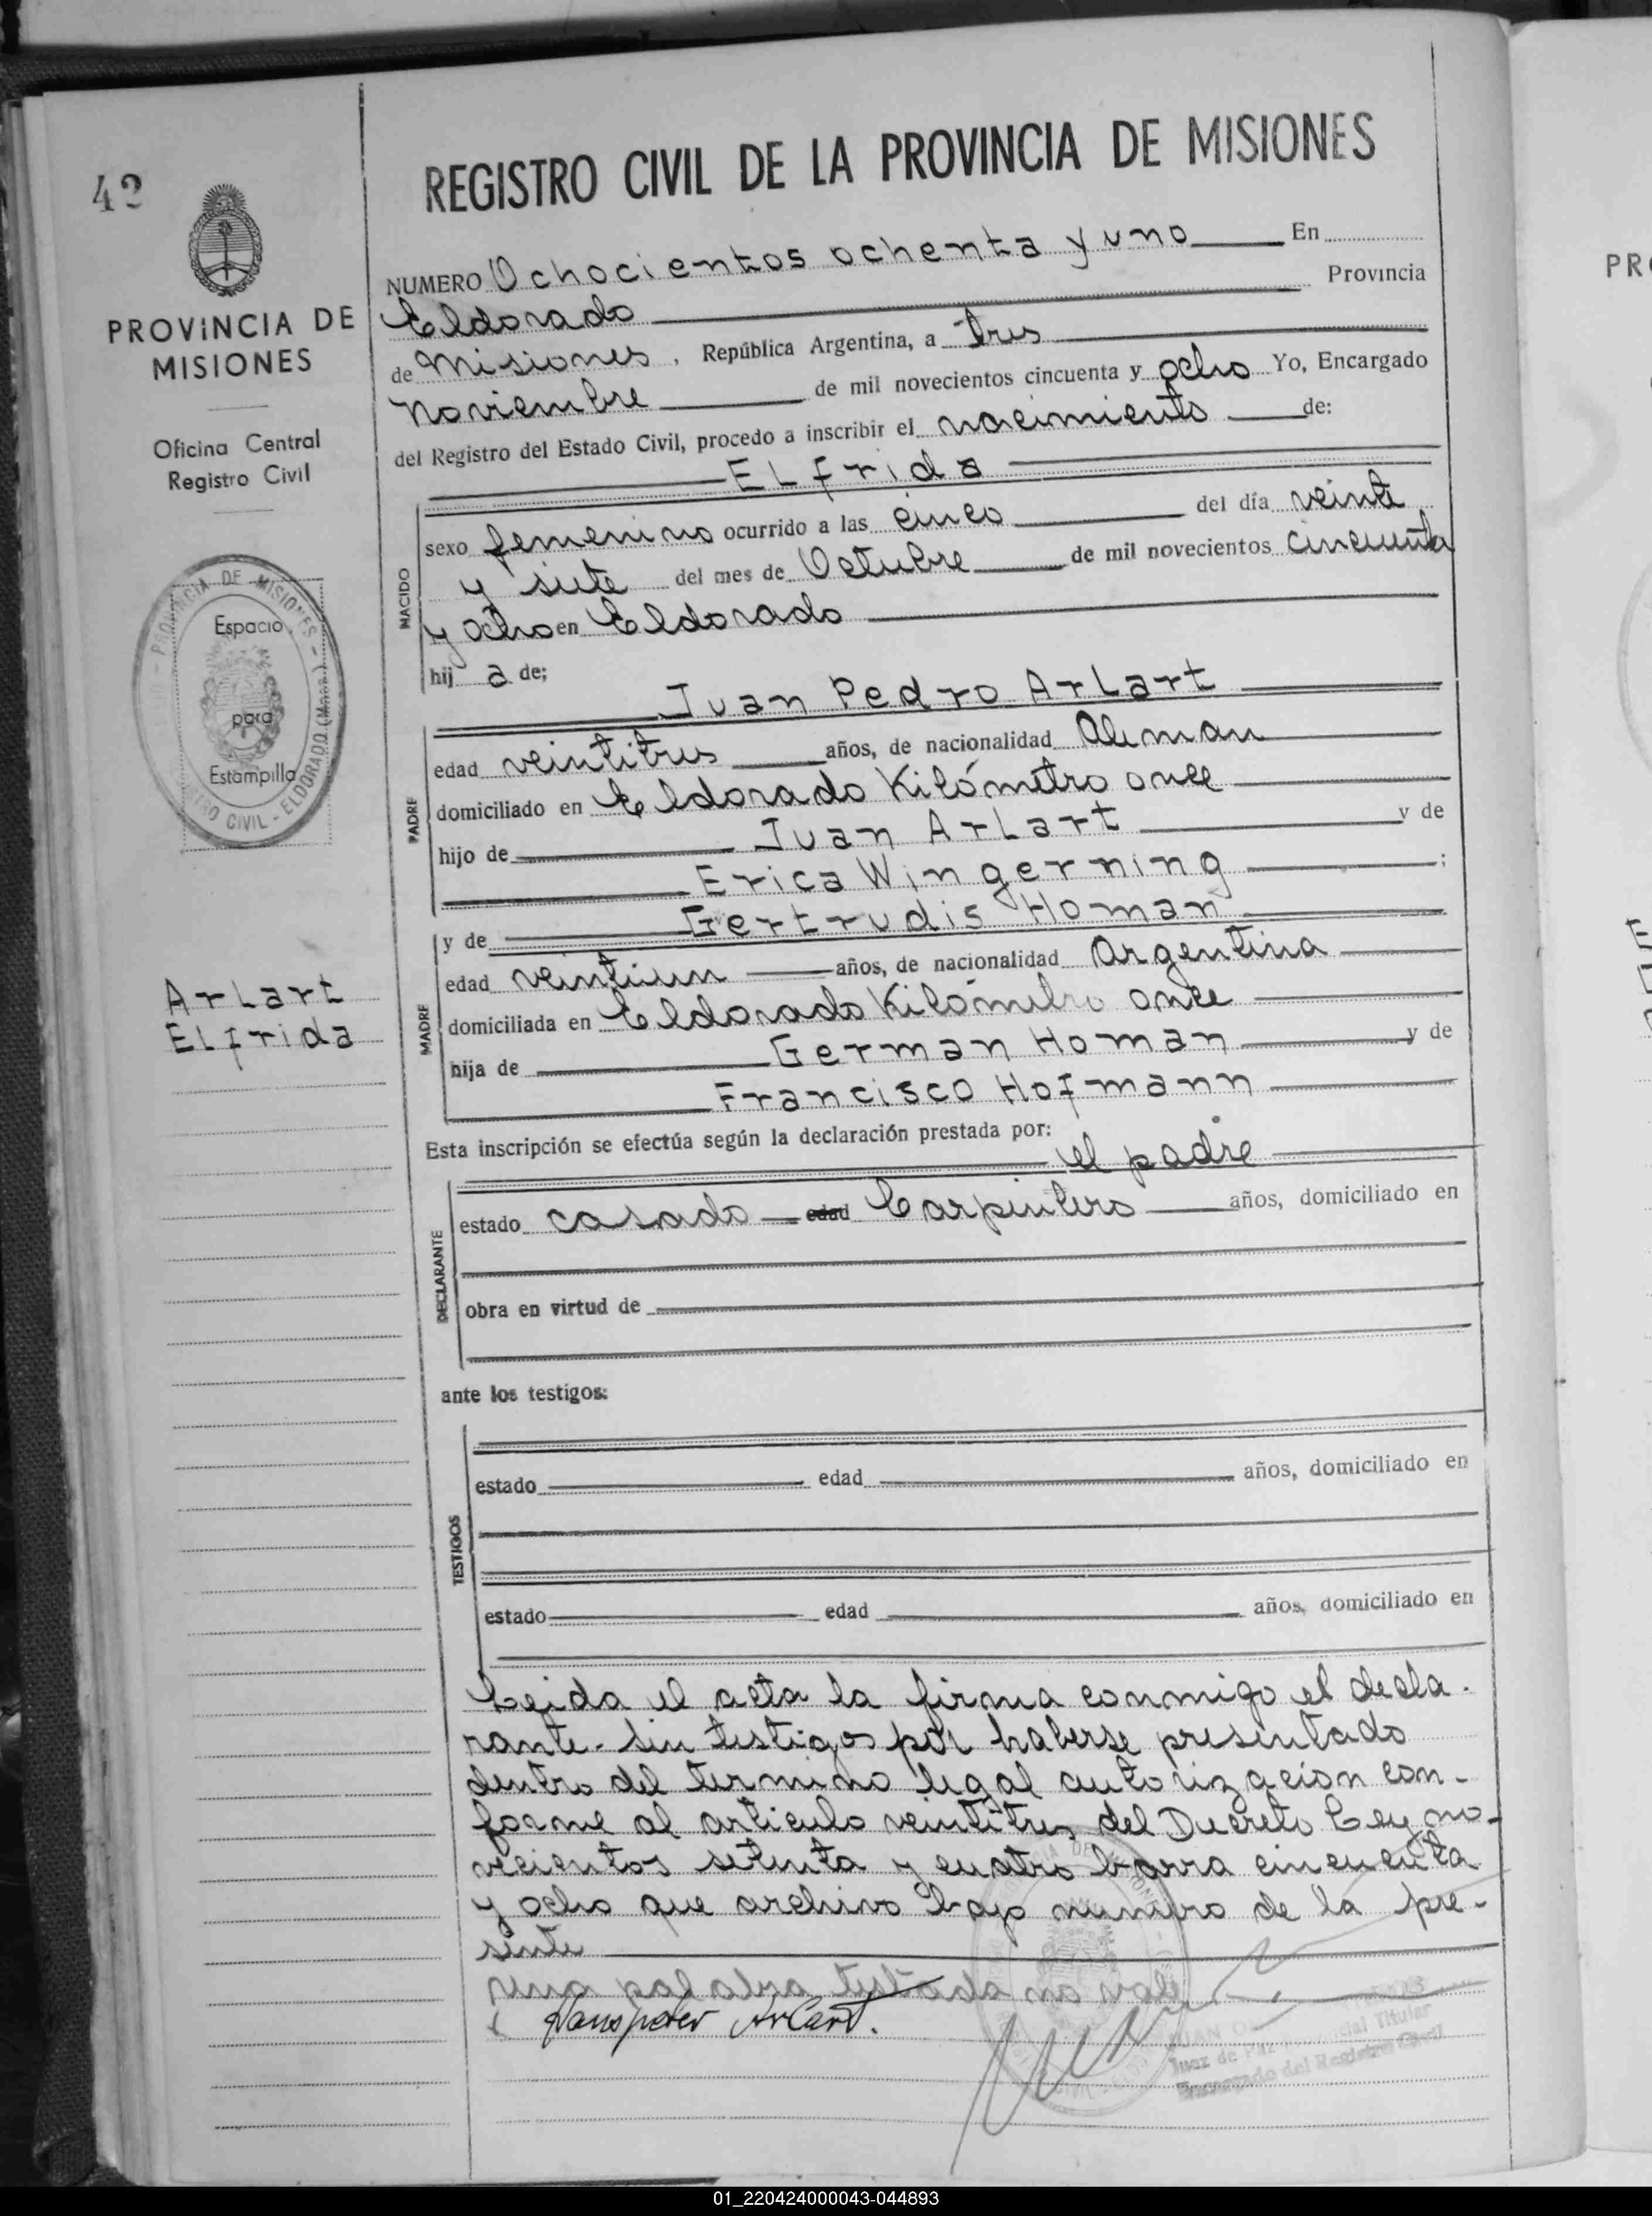 42
PROVINCIA DE
MISIONES
Oficina Central
Registro Civil
PROVINCIA DE MISIONES -
REGISTRO CIVIL - ELDORADO (Mnes.)
Espacio
para
Estampilla
Arlart
Elfrida
REGISTRO CIVIL DE LA PROVINCIA DE MISIONES
NUMERO Ochocientos ochenta y uno En
Eldorado Provincia
de Misiones, República Argentina, a tres
noviembre de mil novecientos cincuenta y ocho Yo, Encargado
del Registro del Estado Civil, procedo a inscribir el nacimiento de:
Elfrida
NACIDO
sexo femenino ocurrido a las cinco del día veinte
y siete del mes de Octubre de mil novecientos cincuenta
y ocho en Eldorado
hij a de;
Juan Pedro Arlart
PADRE
edad veintitres años, de nacionalidad Aleman
domiciliado en Eldorado Kilómetro once
hijo de Juan Arlart y de
Erica Wingerning ;
y de Gertrudis Homan
MADRE
edad veintiun años, de nacionalidad Argentina
domiciliada en Eldorado Kilómetro once
hija de German Homan y de
Francisco Hofmann
Esta inscripción se efectúa según la declaración prestada por:
el padre
DECLARANTE
estado casado edad Carpintero años, domiciliado en
obra en virtud de
ante los testigos:
TESTIGOS
estado edad años, domiciliado en
estado edad años, domiciliado en
Leida el acta la firma conmigo el decla-
rante. Sin testigos por haberse presentado
dentro del termino legal autorización con-
forme al articulo veintitres del Decreto Ley no-
vecientos setenta y cuatro barra cincuenta
y ocho que archivo bajo numero de la pre-
sente
una palabra testada no vale
Hanspeter Arlart.
JUAN
Juez de Paz Titular
Encargado del Registro Civil
PR
01_220424000043-044893